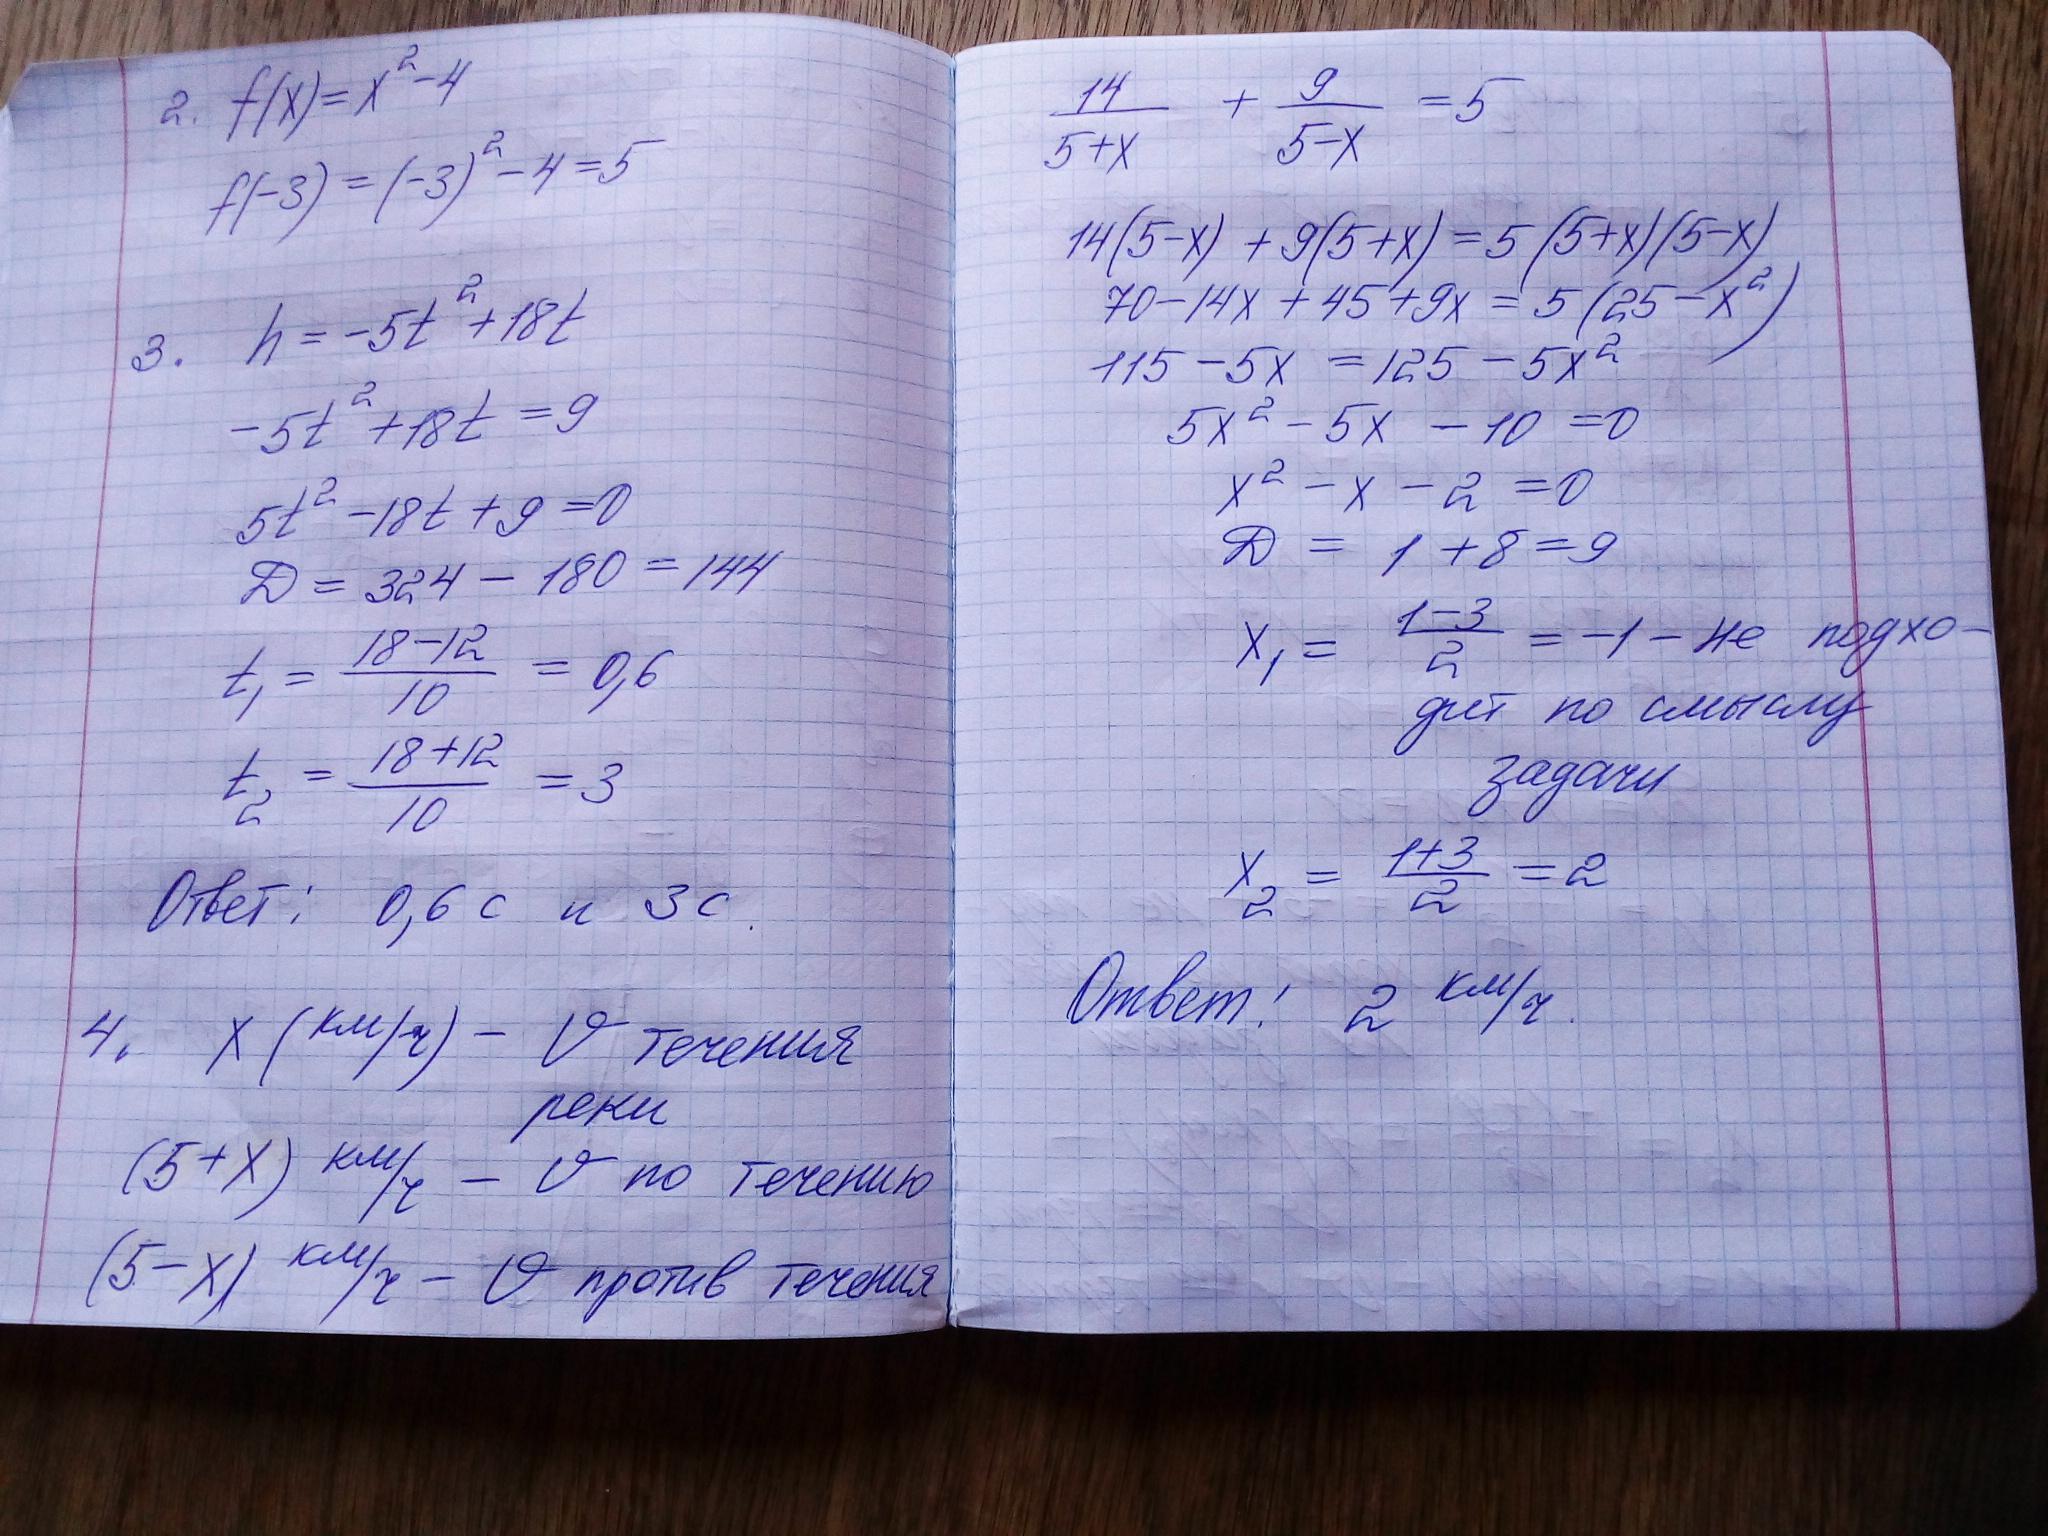 2. f(x) = x² - 4
f(-3) = (-3)² - 4 = 5
3. h = -5t² + 18t
-5t² + 18t = 9
5t² - 18t + 9 = 0
D = 324 - 180 = 144
t₁ = (18-12)/10 = 0,6
t₂ = (18+12)/10 = 3
Ответ: 0,6 с и 3 с.
4. x (км/ч) - v течения
реки
(5+x) км/ч - v по течению
(5-x) км/ч - v против течения
14/(5+x) + 9/(5-x) = 5
14(5-x) + 9(5+x) = 5(5+x)(5-x)
70 - 14x + 45 + 9x = 5(25 - x²)
115 - 5x = 125 - 5x²
5x² - 5x - 10 = 0
x² - x - 2 = 0
D = 1 + 8 = 9
x₁ = (1-3)/2 = -1 - не подхо-
дит по смыслу
задачи
x₂ = (1+3)/2 = 2
Ответ: 2 км/ч.